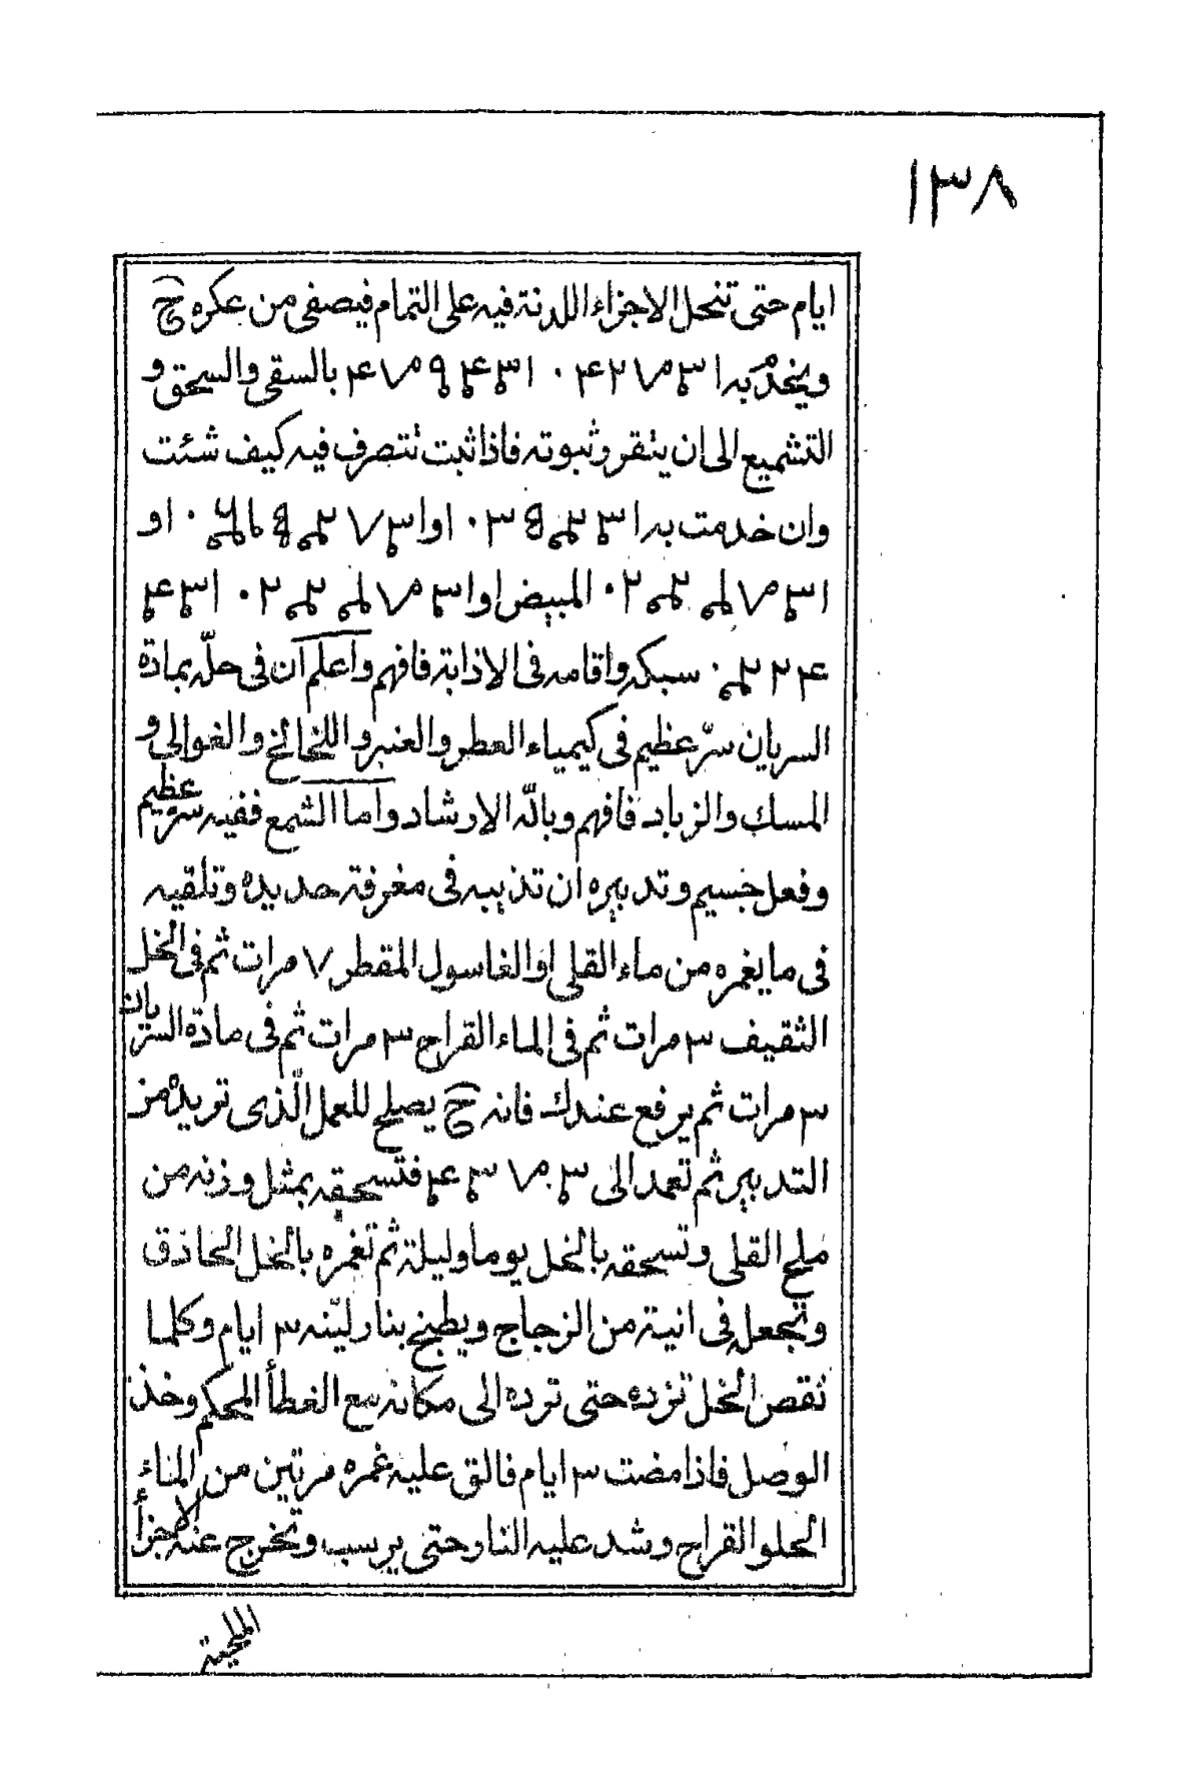 ١٣٨
ايام حتى تنحل الاجزاء اللدنة فيه على التمام فيصفى من عكره ح
ويخدم به ا بالسقى والسحق و
التشميع الى ان يتقرر ثبوته فاذا ثبت تتصرف فيه كيف شئت
وان خدمت به ا او ا او
المبيض او ا
سبكه واقامه فى الاذابة فافهم واعلم ان فى حلّه بمادة
السريان سرّ عظيم فى كيمياء العطر والعنبر واللخالخ والغوالى و
المسك والزباد فافهم وبالله الارشاد واما الشمع ففيه سرّ عظيم
وفعل جسيم وتدبيره ان تذيبه فى مغرفة حديده وتلقيه
فى ما يغمره من ماء القلى او الغاسول المقطر ٧ مرات ثم فى الخل
الثقيف ٣ مرات ثم فى الماء القراح ٣ مرات ثم فى مادة السريان
٣ مرات ثم يرفع عندك فانه ح يصلح للعمل الّذى تريده من
التدبير ثم تعمد الى فتسحقه بمثل وزنه من
ملح القلى وتسحقه بالخل يوما وليلة ثم تغمره بالخل الحاذق
وتجعل فى انية من الزجاج ويطبخ بنار ليّنه ٣ ايام وكلما
نقص الخل تزده حتى ترده الى مكانه مع الغطأ المحكم وخذ
الوصل فاذا مضت ٣ ايام فالق عليه غمره مرتين من الماء
الحلو القراح وشد عليه النار حتى يرسب وتخرج عنه الاجزأ
الملحية